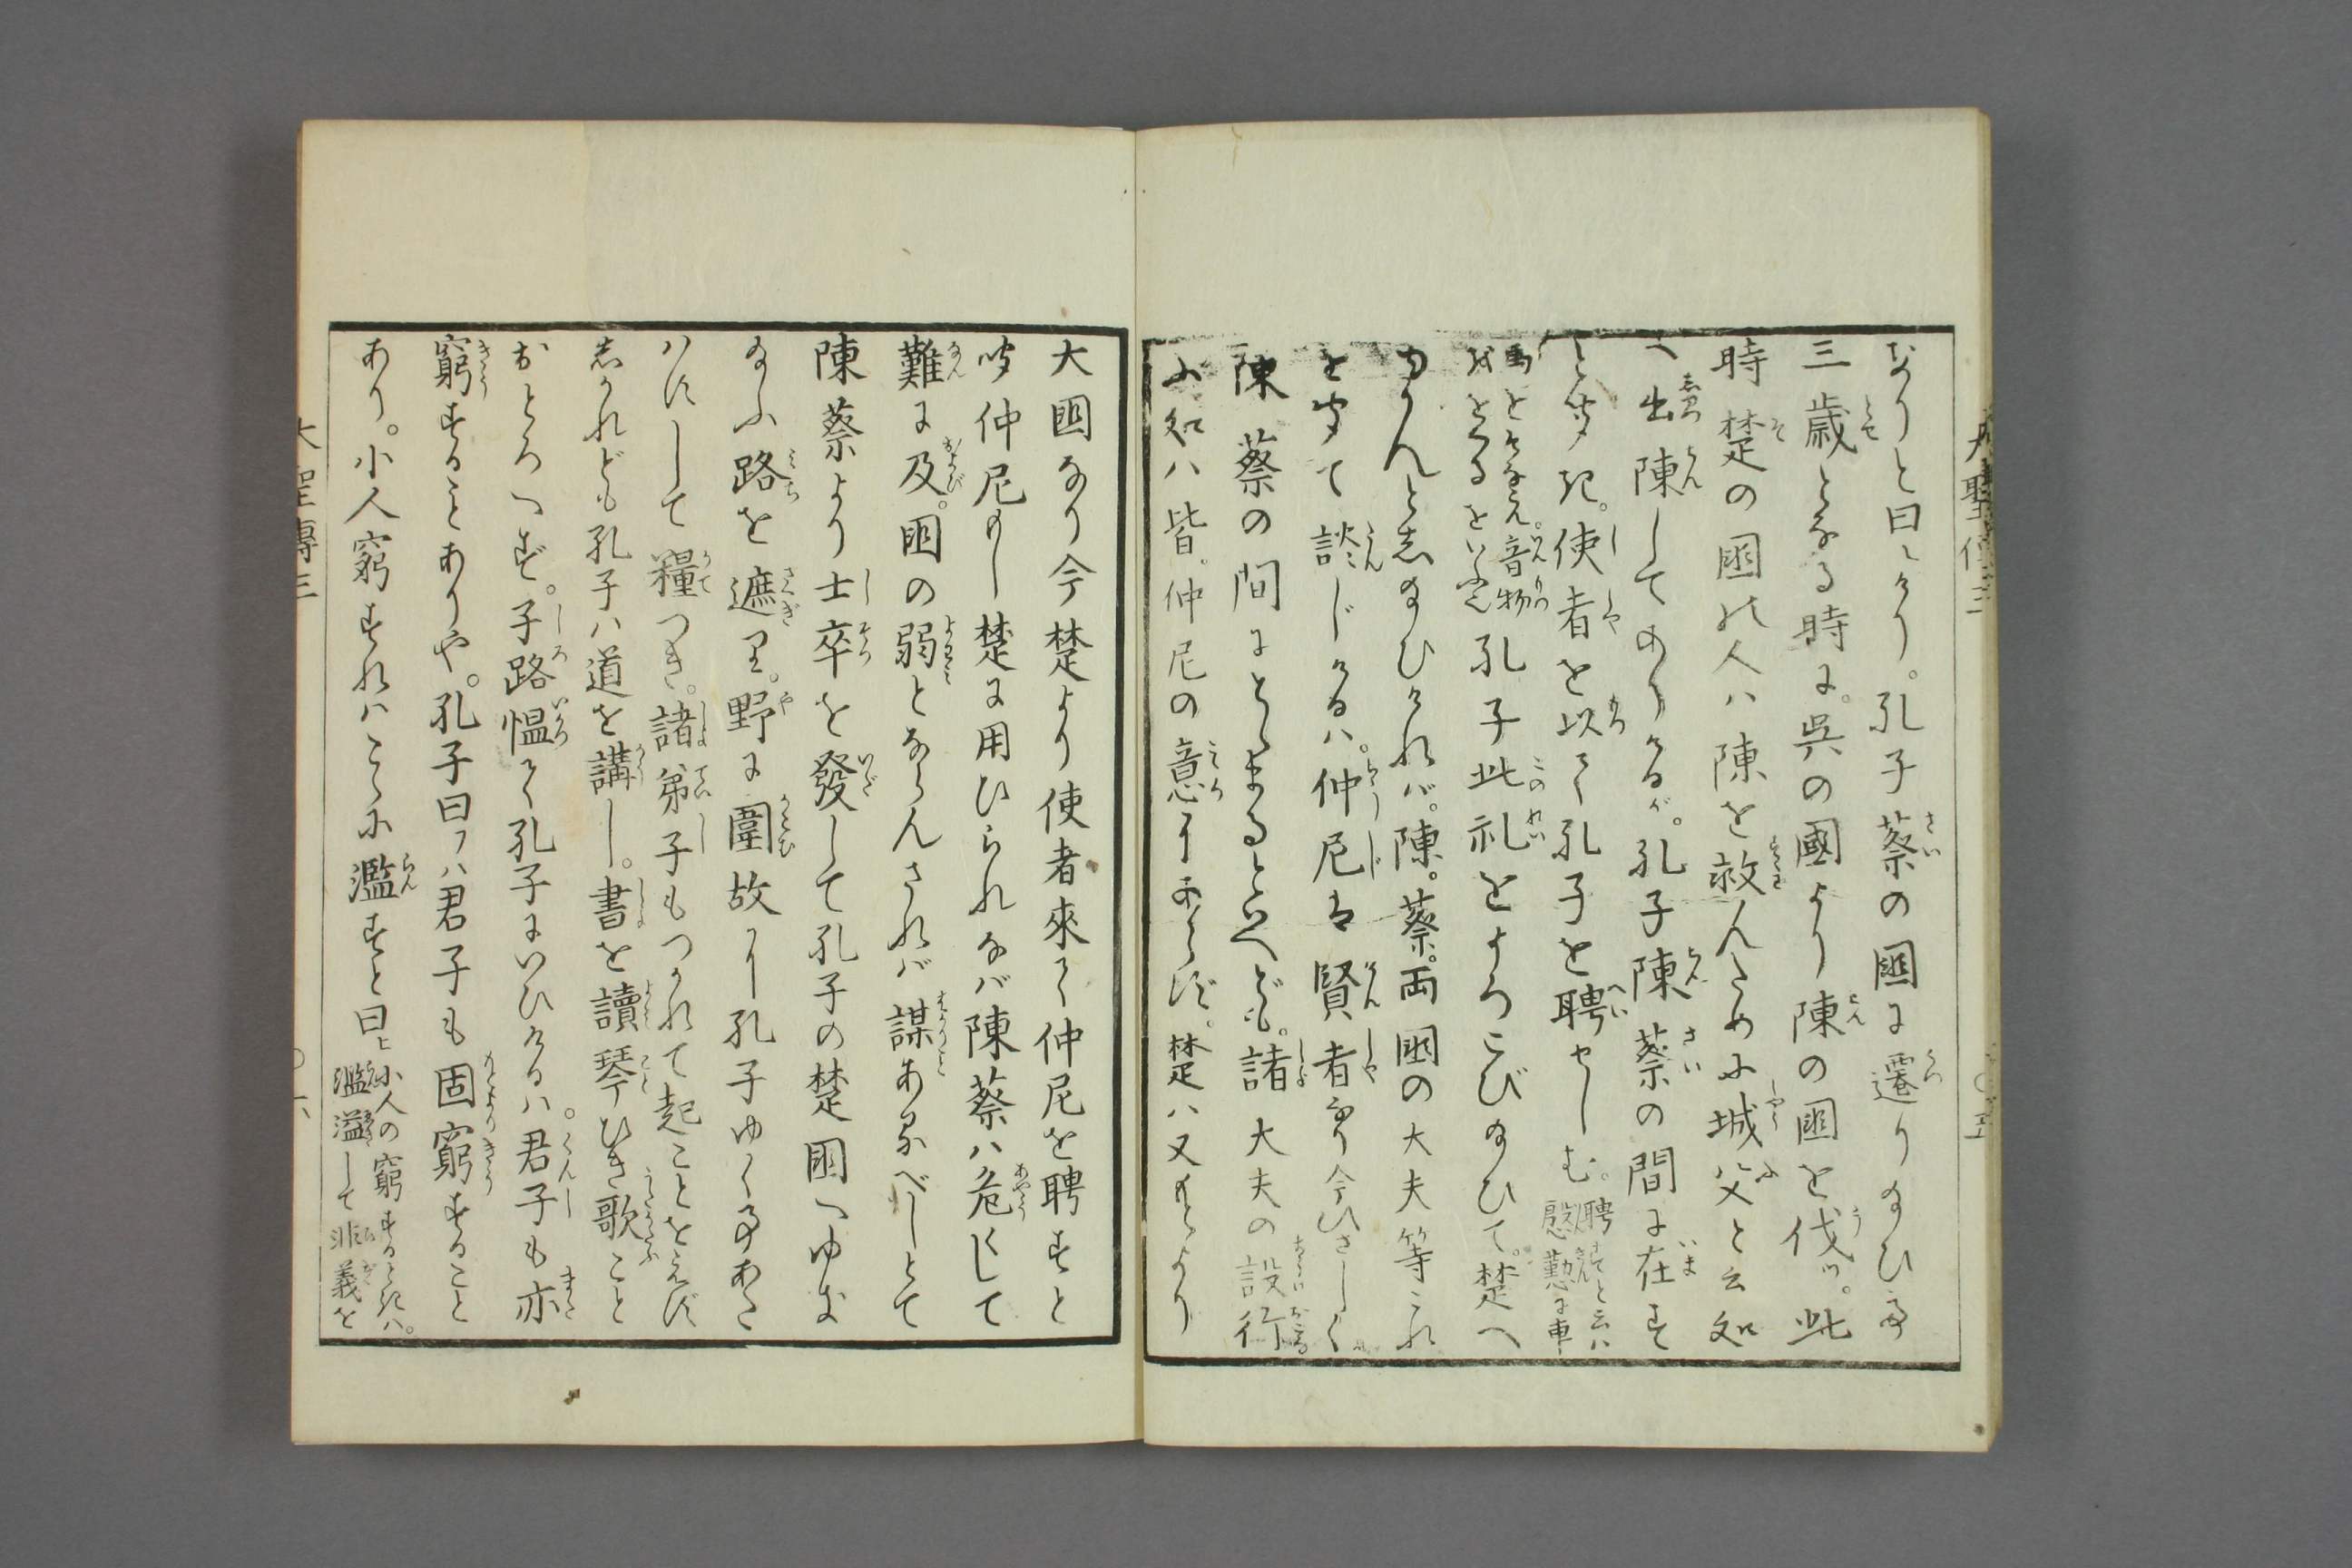 なりと曰けり。孔子蔡の国に遷り給ひ六十
三歳となる時に。呉の國より陳の国を伐ツ。此
時楚の国の人ハ陳を救んために城父と云処
へ出陳してありけるが。孔子陳蔡の間に在す
と聞き。使者を以て孔子を聘せしむ。聘すと云ハ慇懃に車
馬をそなえ。音物をとゝのふるをいふ也孔子此礼をよろこび給ひて。楚へ
ゆかんと志給ひけれバ。陳。蔡。両国の大夫等これ
を聞て談じけるハ。仲尼は賢者なり今ひさしく。
陳蔡の間にとゞまるといへども。諸大夫の設行
ふ処ハ皆。仲尼の意にあらず。楚ハ又もとより
大国なり今楚より使者來て仲尼を聘すと
聞仲尼もし楚に用ひられなバ陳蔡ハ危くして
難に及。国の弱とならんされバ謀あるべしとて
陳蔡より士卒を發して孔子の楚国へゆき
給ふ路を遮り。野に圍故に孔子ゆく事あた
ハずして糧つき。諸弟子もつかれて起ことをえず
志かれども孔子ハ道を講し。書を讀琴ひき歌こと
おとろへず。子路慍て孔子にいひけるハ。君子も亦
窮することありや。孔子曰ハ君子も固窮すること
あり。小人窮すれハこゝに濫すと曰ヒ小人の窮するときハ。濫溢して非義を
大聖傳三